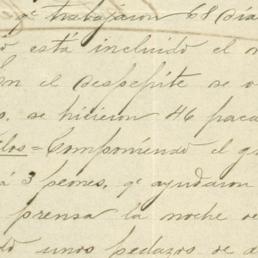 qe trabajaron 68 día
está incluido el
En el despepite se
se hicieron 46 paca
los = Componiendo el
3 peones, qe ayudaron
prensa la noche de
unos pedazos de